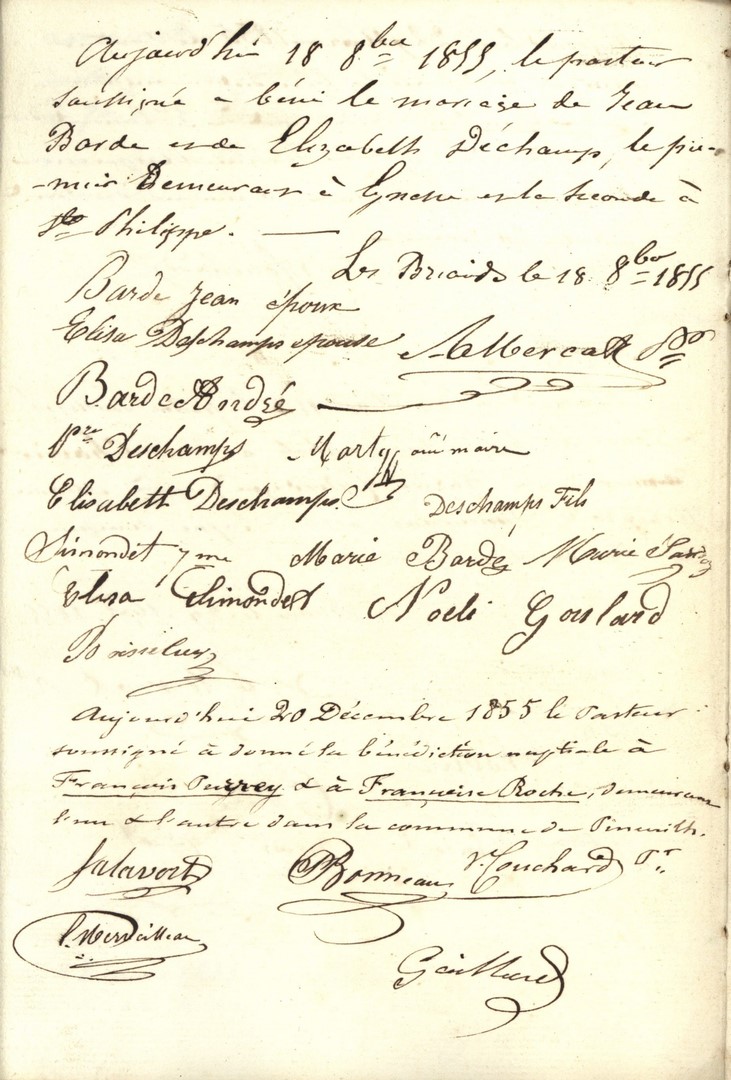 Aujourd'hui 18 8bre 1855, le pasteur
soussigné a béni le mariage de Jean
Barde et de Elizabeth Déchamp, le pre-
-mier Demeurant à Eynesse et la seconde à
Ste Philippe.
Les Briands le 18 8bre 1855
Barde Jean époux
Elisa Deschamps épouse A Mercat Pr
Barde André
Pre Deschamps Marty maire
Elisabett Deschamps Deschamps Fils
Simondet Marie Bardé Marie
Elisa Simondet Noeli Goulard
Aujourd'hui 20 Décembre 1855 le Pasteur
soussigné à donné la bénédiction nuptiale à
François Perrey & à Françoise Roche, demeurant
l'un & l'autre dans la commune de Pineuilh.
Bonneau Vr Couchard Pr
Gaillard